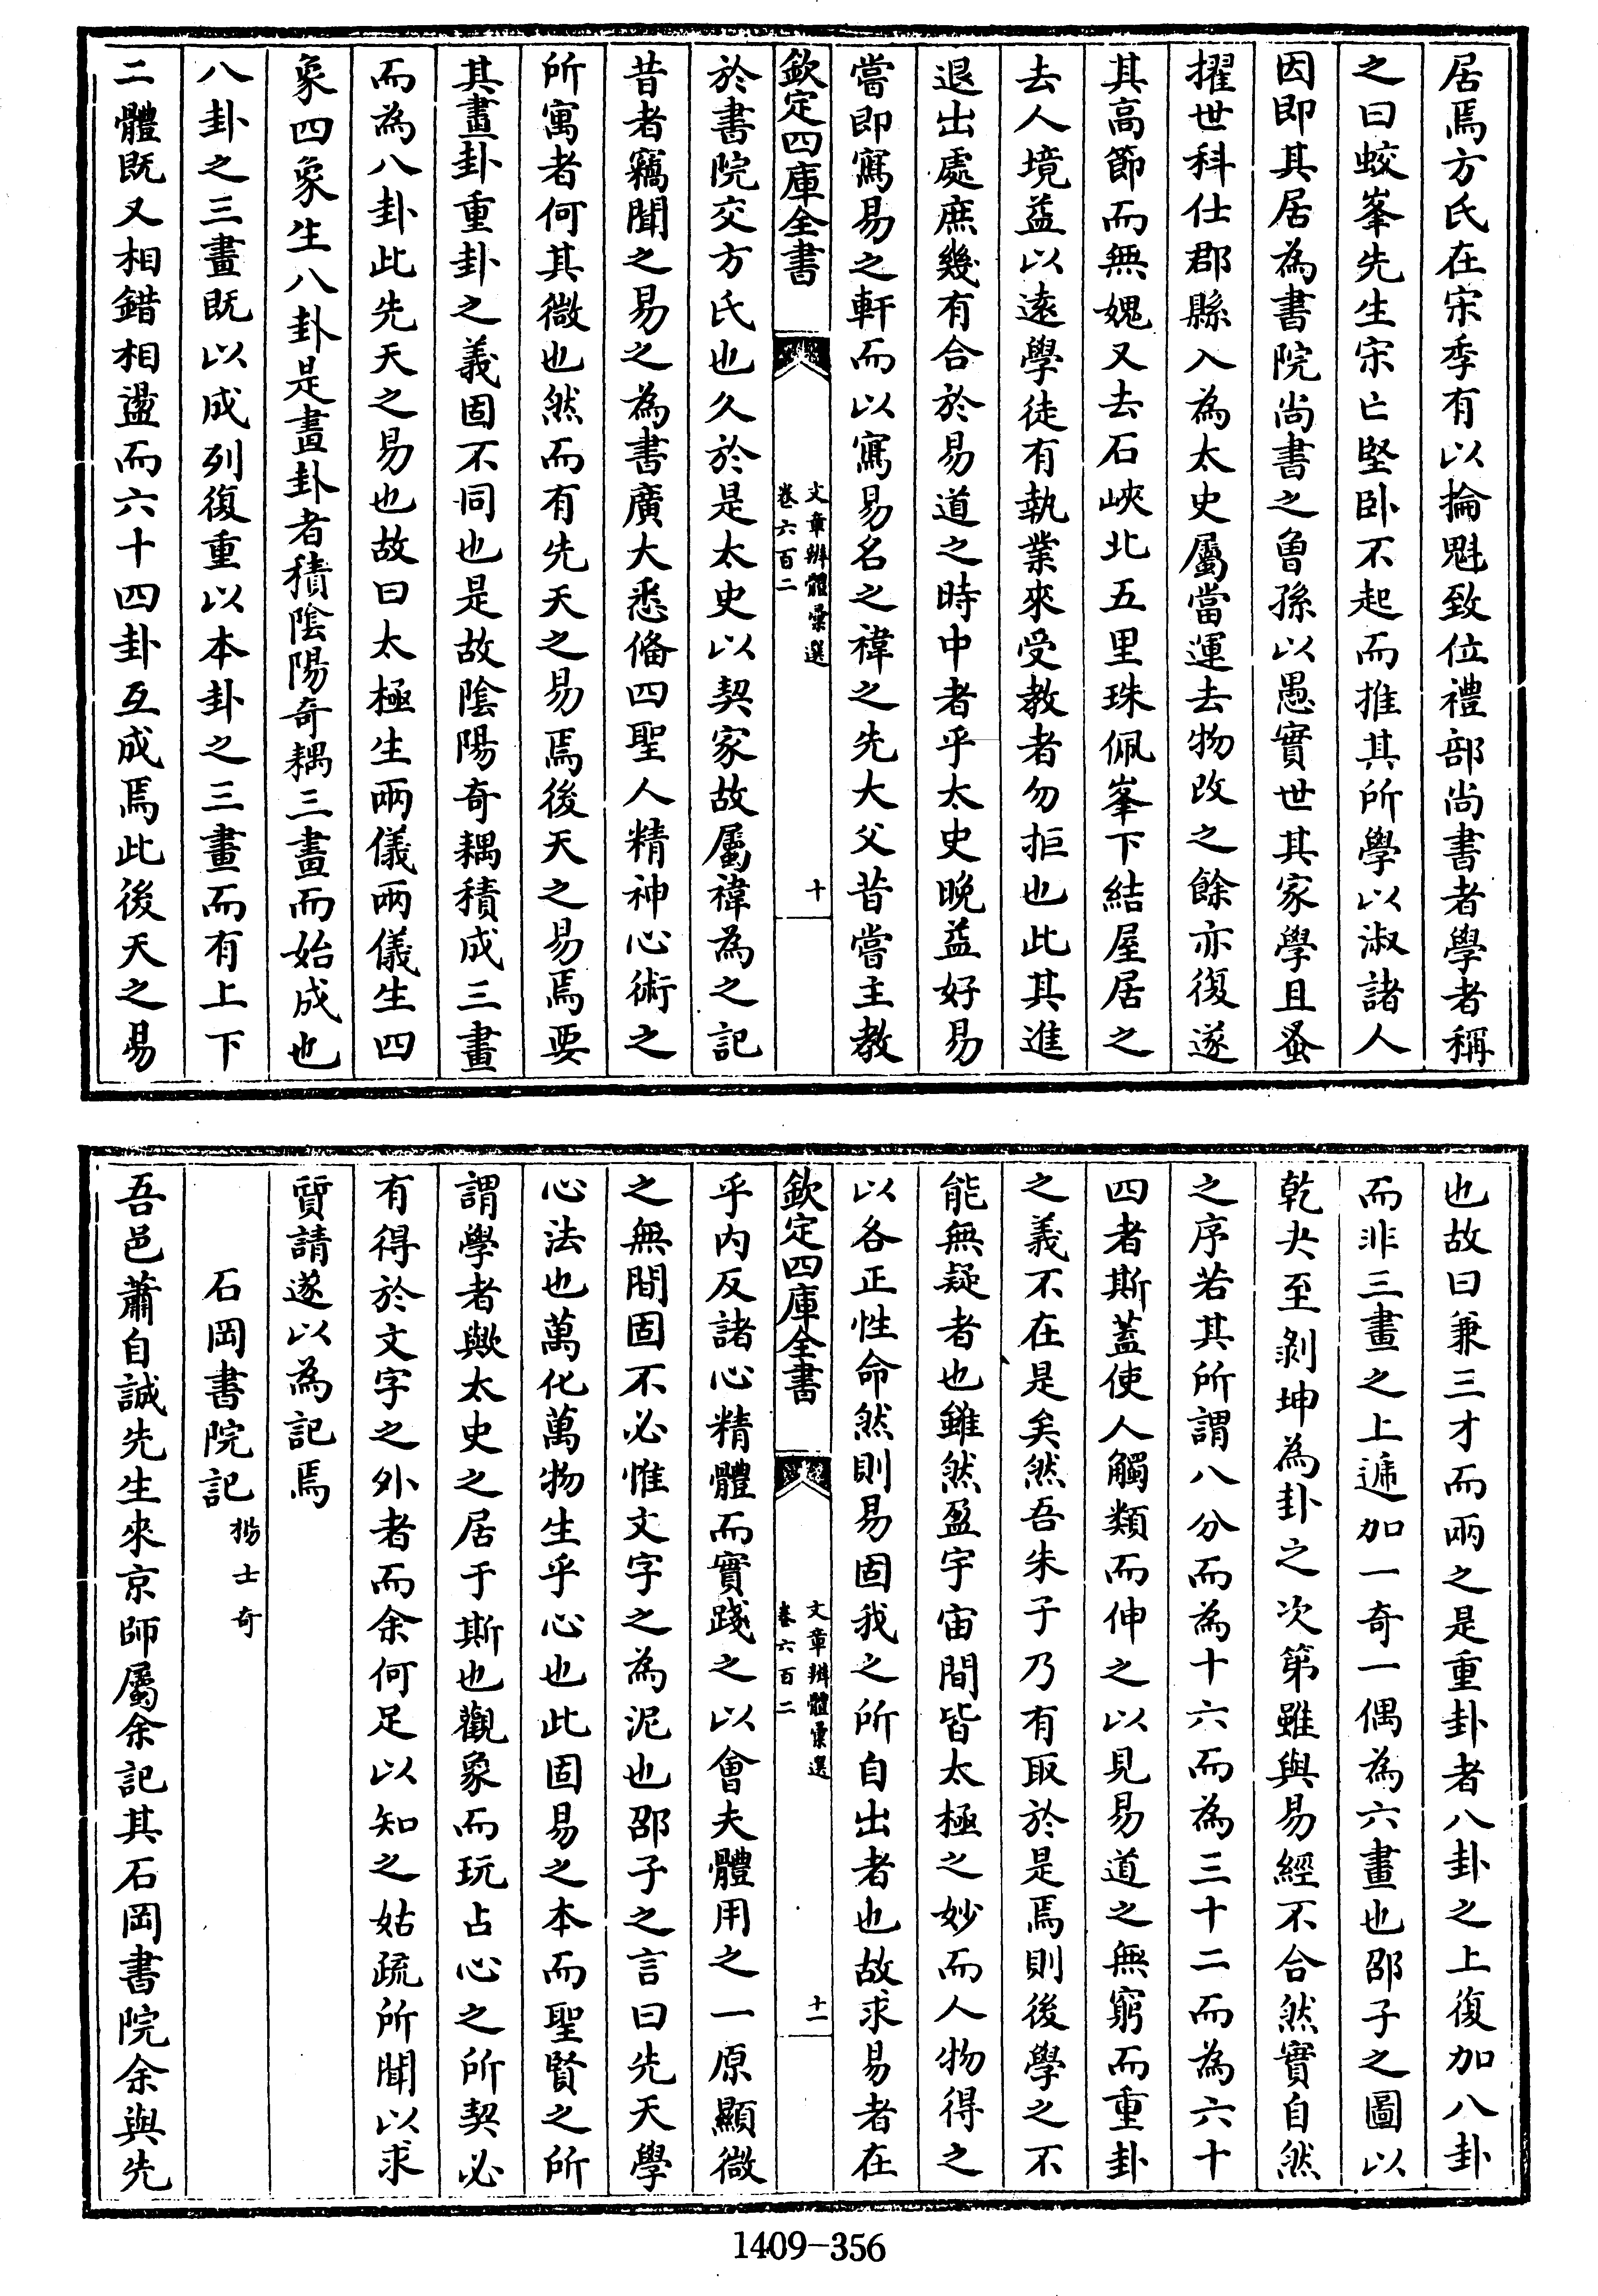 居焉方氏在宋季有以掄魁致位禮部尚書者學者稱
之曰蛟峯先生宋亡堅卧不起而推其所學以淑諸人
因即其居為書院尚書之曾孫以愚實世其家學且蚤
擢世科仕郡縣入為太史屬當運去物改之餘亦復遂
其高節而無媿又去石峽北五里珠佩峯下結屋居之
去人境益以遠學徒有執業來受教者勿拒也此其進
退出處庶幾有合於易道之時中者乎太史晚益好易
嘗即寫易之軒而以寫易名之禕之先大父昔嘗主教
欽定四庫全書
文章辨體彙選
卷六百二
十
於書院交方氏也久於是太史以契家故屬禕為之記
昔者竊聞之易之為書廣大悉備四聖人精神心術之
所寓者何其微也然而有先天之易焉後天之易焉要
其畫卦重卦之義固不同也是故陰陽奇耦積成三畫
而為八卦此先天之易也故曰太極生兩儀兩儀生四
象四象生八卦是畫卦者積陰陽奇耦三畫而始成也
八卦之三畫既以成列復重以本卦之三畫而有上下
二體既又相錯相盪而六十四卦互成焉此後天之易
也故曰兼三才而兩之是重卦者八卦之上復加八卦
而非三畫之上遞加一奇一偶為六畫也邵子之圖以
乾夬至剝坤為卦之次第雖與易經不合然實自然
之序若其所謂八分而為十六而為三十二而為六十
四者斯蓋使人觸類而伸之以見易道之無窮而重卦
之義不在是矣然吾朱子乃有取於是焉則後學之不
能無疑者也雖然盈宇宙間皆太極之妙而人物得之
以各正性命然則易固我之所自出者也故求易者在
欽定四庫全書
文章辨體彙選
卷六百二
十一
乎內反諸心精體而實踐之以會夫體用之一原顯微
之無間固不必惟文字之為泥也邵子之言曰先天學
心法也萬化萬物生乎心也此固易之本而聖賢之所
謂學者歟太史之居于斯也觀象而玩占心之所契必
有得於文字之外者而余何足以知之姑疏所聞以求
質請遂以為記焉
石岡書院記 楊士奇
吾邑蕭自誠先生來京師屬余記其石岡書院余與先
1409-356